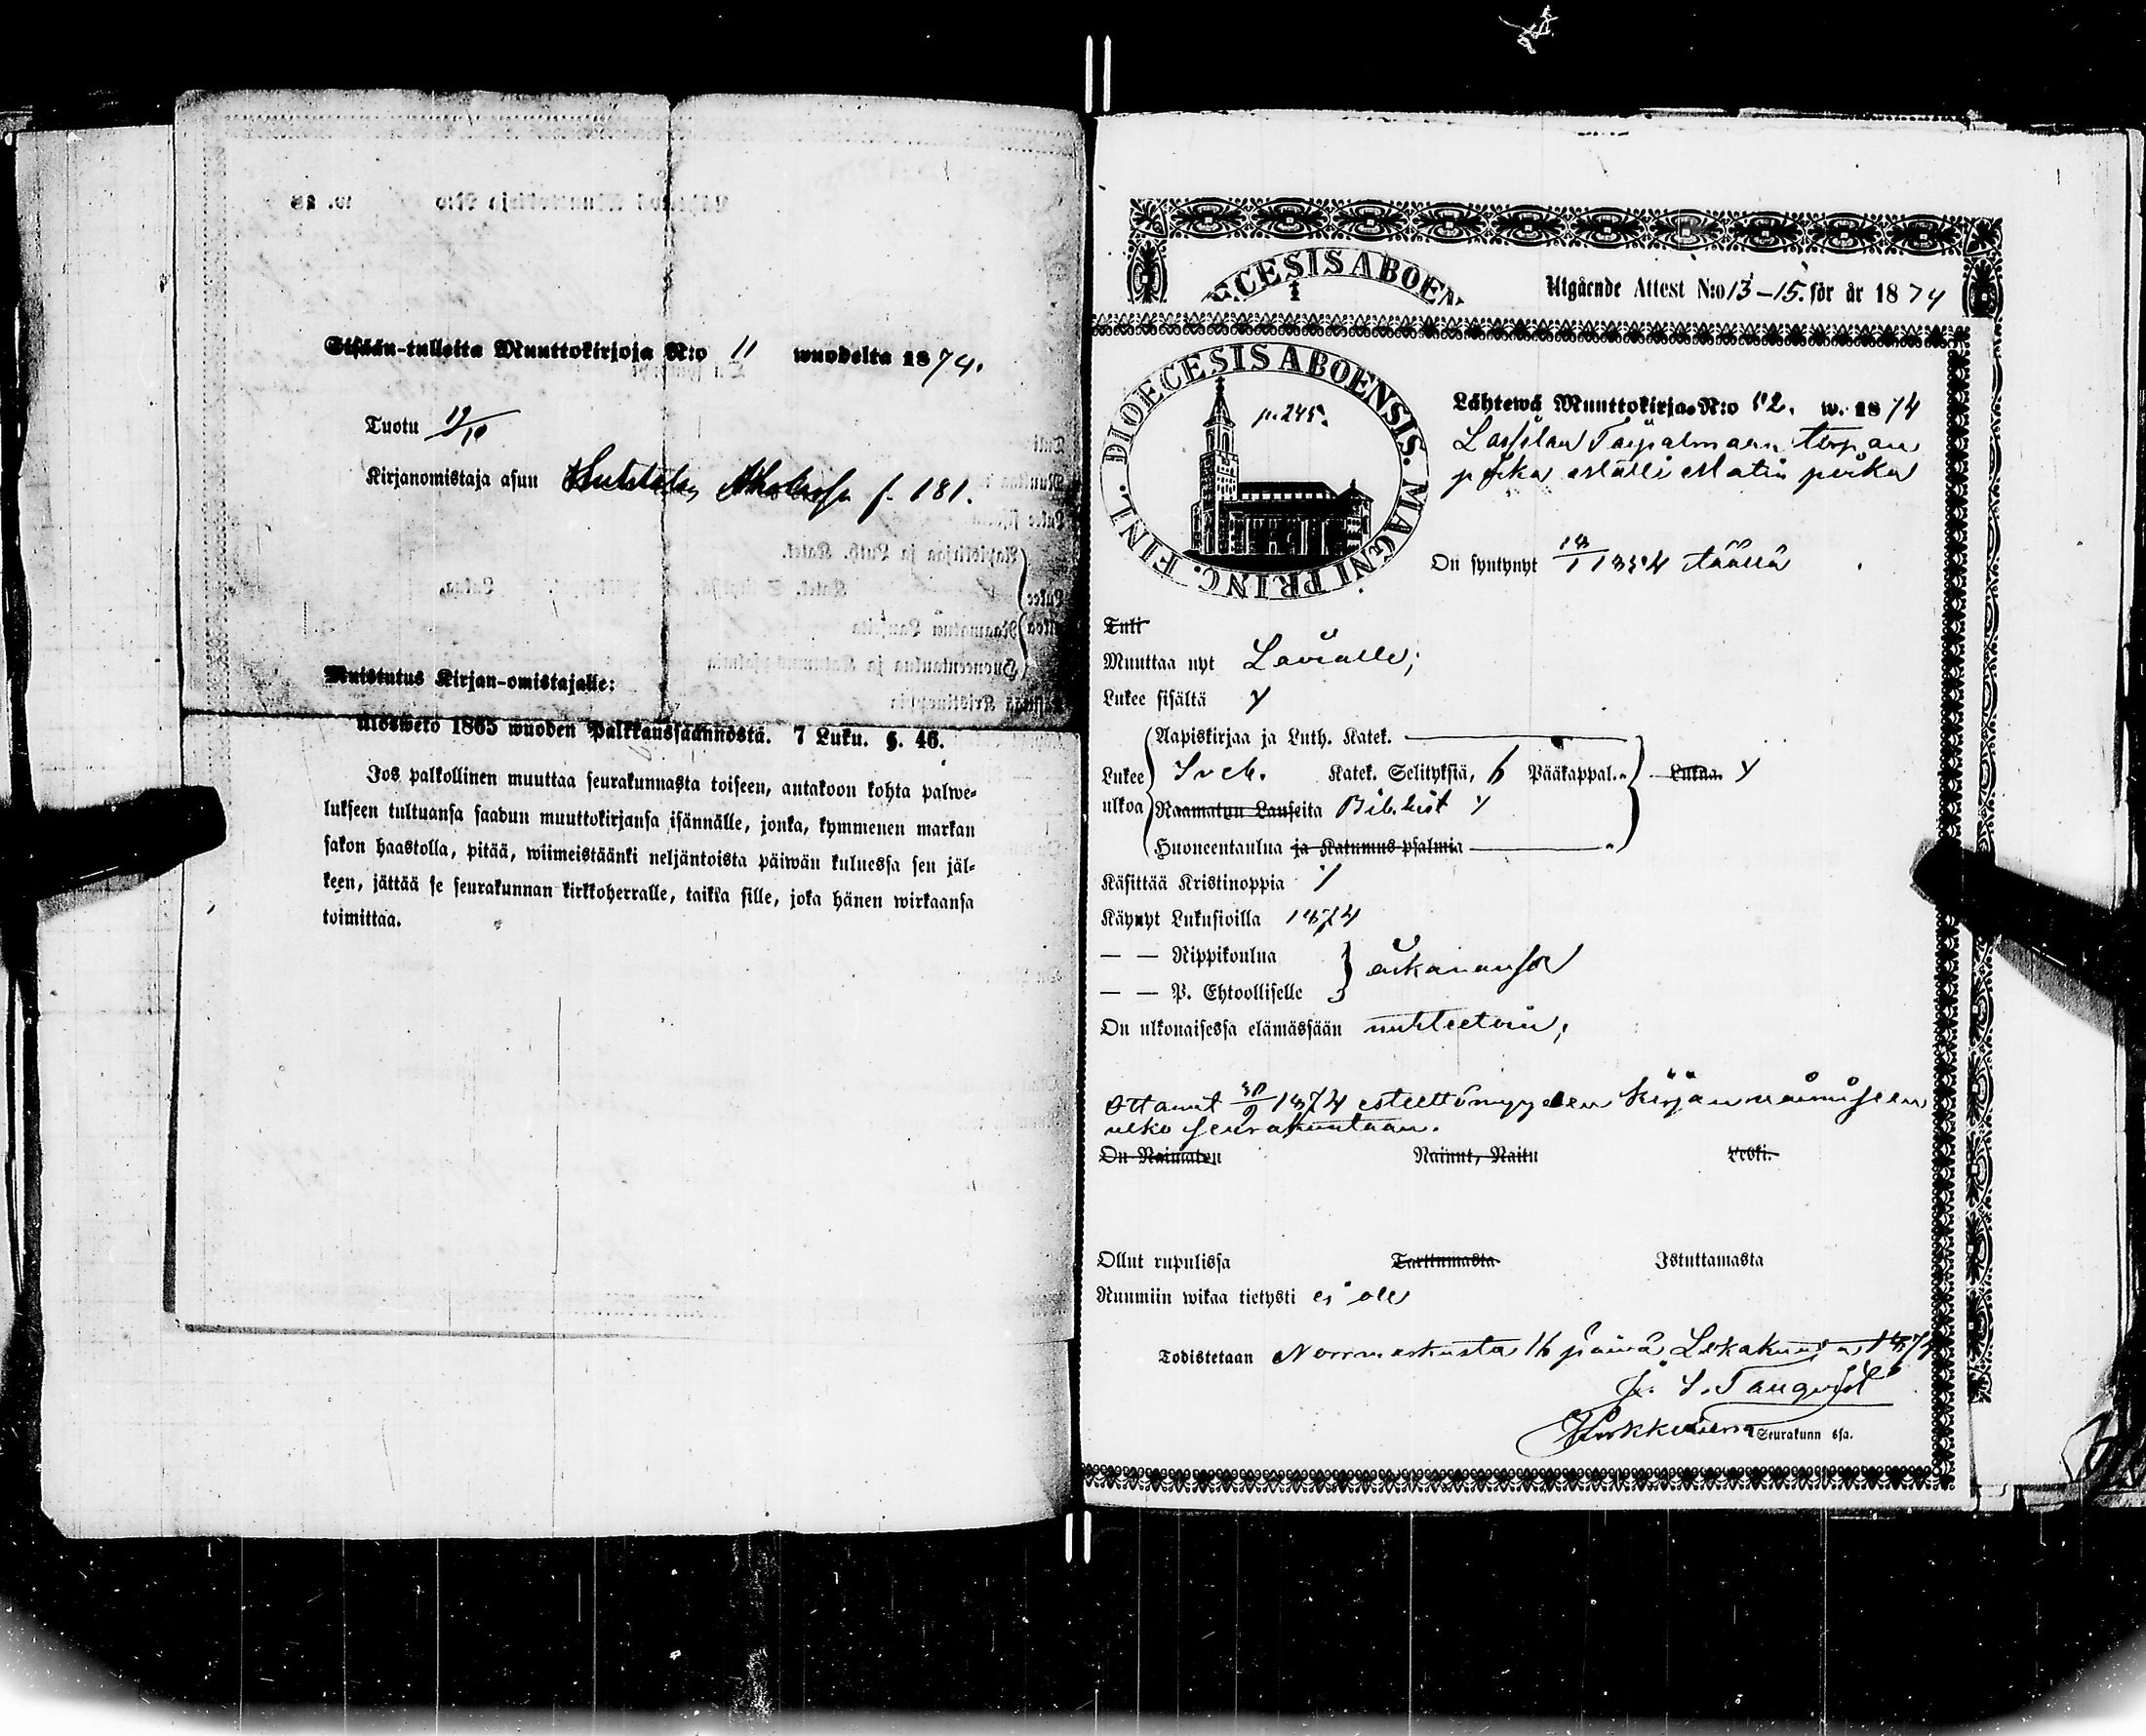 Sisään-tulleita Muuttokirjoja N:o 11 wuodelta 1874.
Tuotu 19/10
Kirjanomistaja asuu f. 181.
Muistutus Kirjan-omistajalle:
Uloswero 1865 wuoden Palkkaussäännöstä. 7 Luku. §. 46.
Jos palkollinen muuttaa seurakunnasta toiseen, antakoon kohta palwe-
lukseen tultuansa saadun muuttokirjansa isännälle, jonka, kymmenen markan
sakon haastolla, pitää, wiimeistäänki neljäntoista päiwän kuluessa sen jäl-
keen, jättää se seurakunnan kirkkoherralle, taikka sille, joka hänen wirkaansa
toimittaa.
ECESIS ABOEN
Utgående Attest N:o 13-15. för år 1874
DIOECESIS ABOENSIS. MAGNI PRINC. FINL.
p. 245.
Lähtewä Muuttokirja N:o 12. w. 1874
Lassilan Taipalmaan torpan
poika Malli Matin poika
On syntynyt 18/1 1854 täällä
Tuli
Muuttaa nyt Lavialle;
Lukee sisältä y
Aapiskirjaa ja Luth. Katek.
Lukee Sveb. Katek. Selityksiä, 6 Pääkappal. Lukua. y
ulkoa Raamatun Lauseita Bib. hist y
Huoneentaulua ja Katumus-psalmia
Käsittää Kristinoppia y
Käynyt Lukusioilla 1874
— — Rippikoulua
aikanansa
— — P. Ehtoolliselle
On ulkonaisessa elämässään nuhteetoin;
Ottanut 30/9 1874 esteettömyyden kirjan naimiseen
ulko seurakuntaan.
On Naimaton Nainut, Naitu Leski.
Ollut rupulissa Tarttumasta Istuttamasta
Ruumiin wikaa tietysti ei ole
Todistetaan Norrmarkusta 16 päivä Lokakuusa 1874
J. S. Tanqvist
Kirkkoherra Seurakunn ssa.